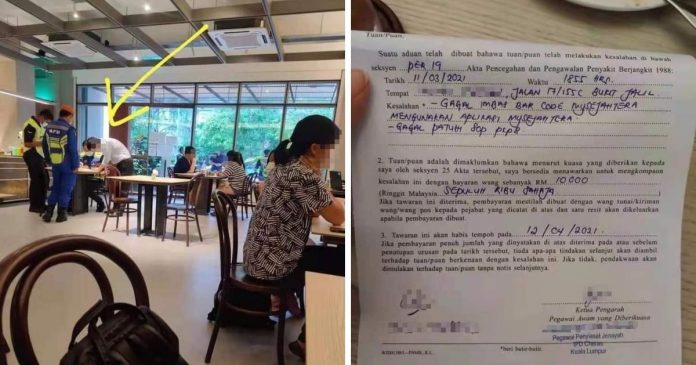 Tuan/Puan,
Suatu aduan telah dibuat bahawa tuan/puan telah melakukan kesalahan di bawah
seksyen PER 19 Akta Pencegahan dan Pengawalan Penyakit Berjangkit 1988:
Tarikh 11/03/2021 Waktu 1855 HRS.
Tempat JALAN 17/155C BUKIT JALIL
Kesalahan - GAGAL IMBAS BAR CODE MYSEJAHTERA
MENGUNAKAN APLIKASI MYSEJAHTERA
- GAGAL PATUHI SOP PKPB
2. Tuan/Puan adalah dimaklumkan bahawa menurut kuasa yang diberikan kepada
saya oleh seksyen 25 Akta tersebut, saya bersedia menawarkan untuk mengkompaun
kesalahan ini dengan bayaran wang sebanyak RM. 10,000
(Ringgit Malaysia SEPULUH RIBU SAHAJA)
Jika tawaran ini diterima, pembayaran mestilah dibuat dengan wang tunai/kiriman
wang/wang pos kepada pejabat yang dicatat di atas dan satu resit akan dikeluarkan
apabila pembayaran dibuat.
3. Tawaran ini akan habis tempoh pada 12/04/2021.
Jika pembayaran penuh jumlah yang dinyatakan di atas diterima pada atau sebelum
penutupan urusan pada tarikh tersebut, tiada apa-apa tindakan selanjut akan diambil
terhadap tuan/puan berkenaan dengan kesalahan ini. Jika tidak, pendakwaan akan
dimulakan terhadap tuan/puan tanpa notis selanjutnya.
Ketua Pengarah
Pegawai Awam yang Diberikuasa
Pegawai Penyiasat Jenayah
IPD Cheras
Kuala Lumpur
*beri butir-butir.